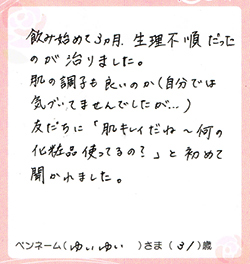 飲み始めて3ヵ月、生理不順だった
のが治りました。
肌の調子も良いのか(自分では
気づいてませんでしたが…)
友だちに「肌キレイだね～何の
化粧品使ってるの?」と初めて
聞かれました。
ペンネーム(ゆいゆい)さま(31)歳